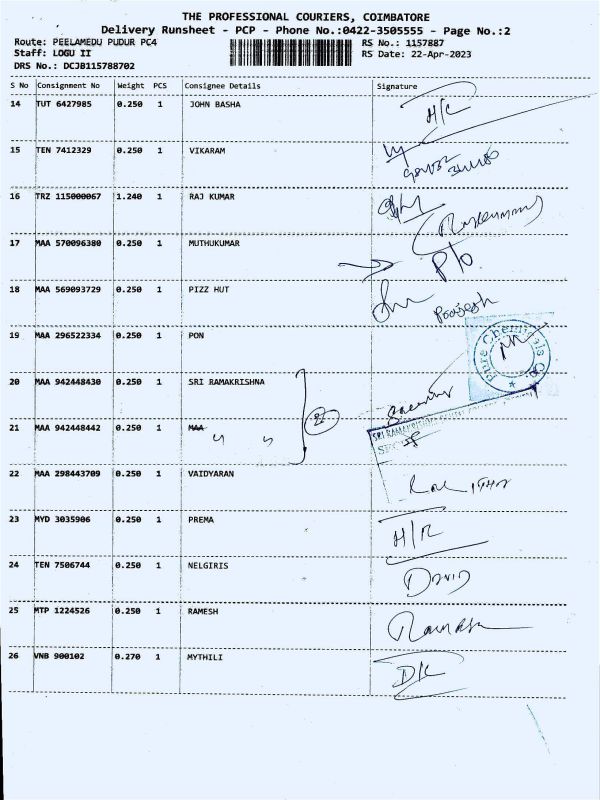 THE PROFESSIONAL COURIERS, COIMBATORE
Delivery Runsheet - PCP - Phone No.:0422-3505555 - Page No.:2
Route: PEELAMEDU PUDUR PC4 RS No.: 1157887
Staff: LOGU II RS Date: 22-Apr-2023
DRS No.: DCJB115788702
S No Consignment No Weight PCS Consignee Details Signature
14 TUT 6427985 0.250 1 JOHN BASHA H/C
15 TEN 7412329 0.250 1 VIKARAM
16 TRZ 115000067 1.240 1 RAJ KUMAR
17 MAA 570096380 0.250 1 MUTHUKUMAR P/O
18 MAA 569093729 0.250 1 PIZZ HUT
19 MAA 296522334 0.250 1 PON
Pure Chemicals Co.
20 MAA 942448430 0.250 1 SRI RAMAKRISHNA
21 MAA 942448442 0.250 1 MAA
SRI RAMAKRISHNA
22 MAA 298443709 0.250 1 VAIDYARAN
23 MYD 3035906 0.250 1 PREMA H/R
24 TEN 7506744 0.250 1 NELGIRIS David
25 MTP 1224526 0.250 1 RAMESH Ramesh
26 VNB 900102 0.270 1 MYTHILI D/C